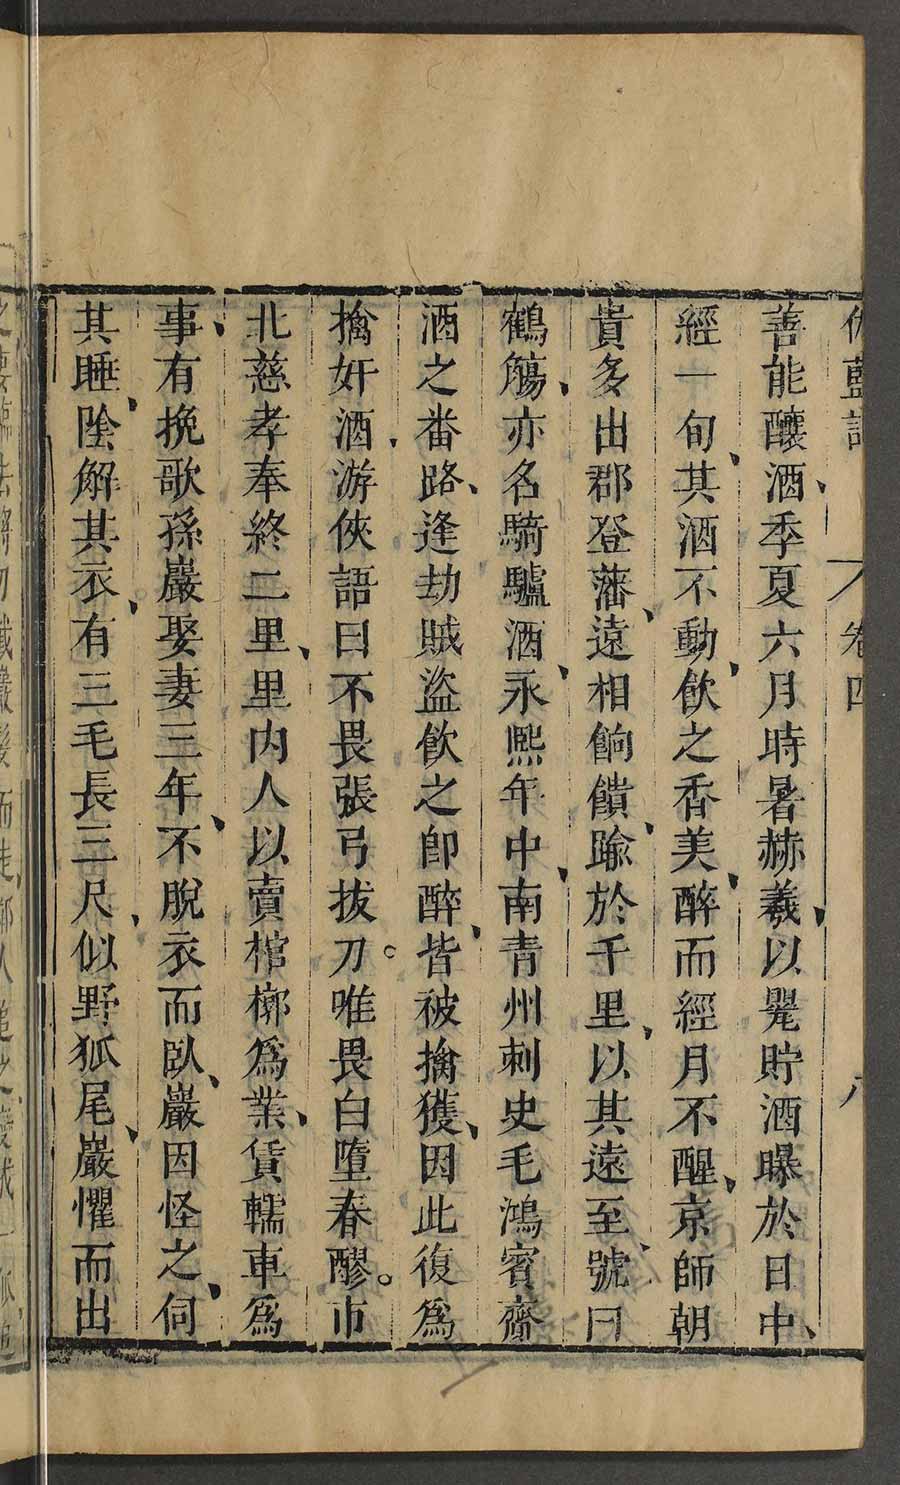 伽藍記 卷四 八
善能釀酒季夏六月時暑赫羲以甖貯酒曝於日中
經一旬其酒不動飲之香美醉而經月不醒京師朝
貴多出郡登藩遠相餉饋踰於千里以其遠至號曰
鶴觴亦名騎驢酒永熙年中南青州刺史毛鴻賓齎
酒之番路逢劫賊盜飲之即醉皆被擒獲因此復爲
擒奸酒游俠語曰不畏張弓拔刀。唯畏白墮春醪。市
北慈孝奉終二里里内人以賣棺槨爲業賃輀車爲
事有挽歌孫巖娶妻三年不脫衣而臥巖因怪之伺
其睡陰解其衣有三毛長三尺似野狐尾巖懼而出